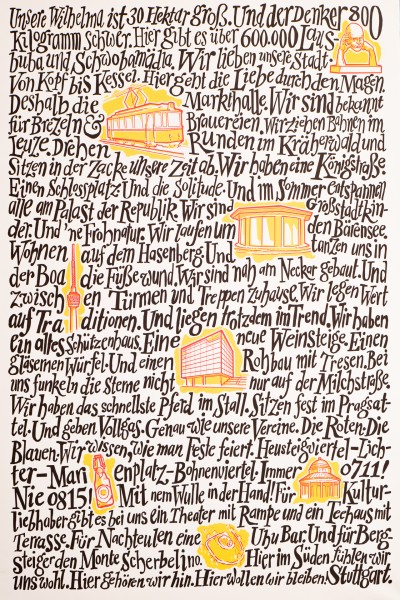 Unsere Wilhelma ist 30 Hektar groß. Und der Denker 800
Kilogramm schwer. Hier gibt es über 600.000 Laus
buba und Schwobamädla. Wir lieben unsere Stadt.
Von Kopf bis Kessel. Hier geht die Liebe durch den Magen
Deshalb die Markthalle. Wir sind bekannt
für Brezeln & Brauereien. Wir ziehen Bahnen im
Leuze. Drehen Runden im Kräherwald und
Sitzen in der Zacke unsere Zeit ab. Wir haben eine Königstraße
Einen Schlossplatz Und die Solitude. Und im Sommer entspannen
alle am Palast der Republik. Wir sind Großstadtkin-
der. Und 'ne Frohnatur. Wir laufen um den Bärensee.
Wohnen auf dem Hasenberg Und tanzen uns in
der Boa die Füße wund. Wir sind nah am Neckar gebaut. Und
zwisch en Türmen und Treppen zuhause. Wir legen Wert
auf Tra ditionen. Und liegen trotzdem im Trend. Wir haben
ein altes Schützenhaus. Eine neue Weinsteige. Einen
gläsernen Würfel. Und einen Rohbau mit Tresen. Bei
uns funkeln die Sterne nicht nur auf der Milchstraße.
Wir haben das schnellste Pferd im Stall. Sitzen fest im Pragsat-
tel. Und geben Vollgas. Genau wie unsere Vereine. Die Roten. Die
Blauen. Wir wissen, wie man Feste feiert. Heusteigviertel-Lich-
ter-Mari enplatz-Bohnenviertel. Immer 0711!
Nie 0815! Mit nem Wulle in der Hand! Für Kultur-
liebhaber gibt es bei uns ein Theater mit Rampe und ein Teehaus mit
Terrasse. Für Nachteulen eine Uhu Bar. Und für Berg-
steiger den Monte Scherbelino. Hier im Süden fühlen wir
uns wohl. Hier gehören wir hin. Hier wollen wir bleiben! Stuttgart.